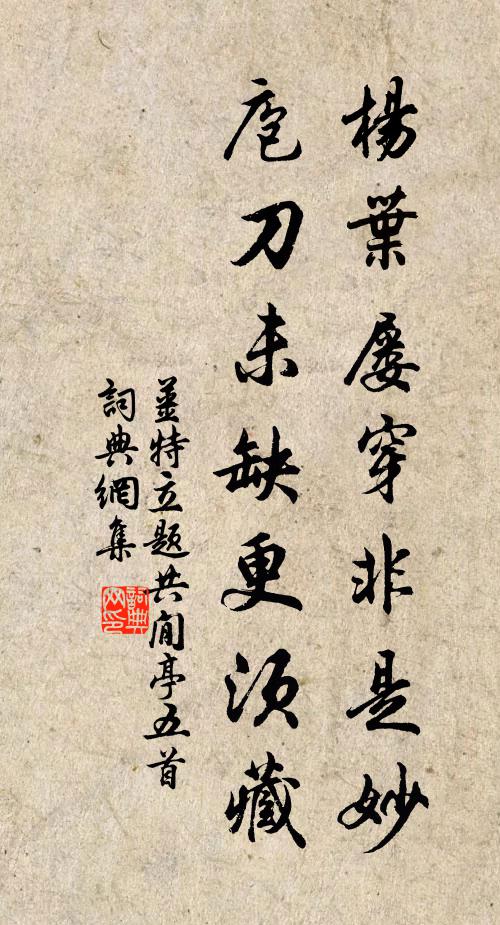 楊葉屢穿非是妙
庖刀未缺更須藏
薑特立題共閒亭五首
詞典網集
詞典
网印